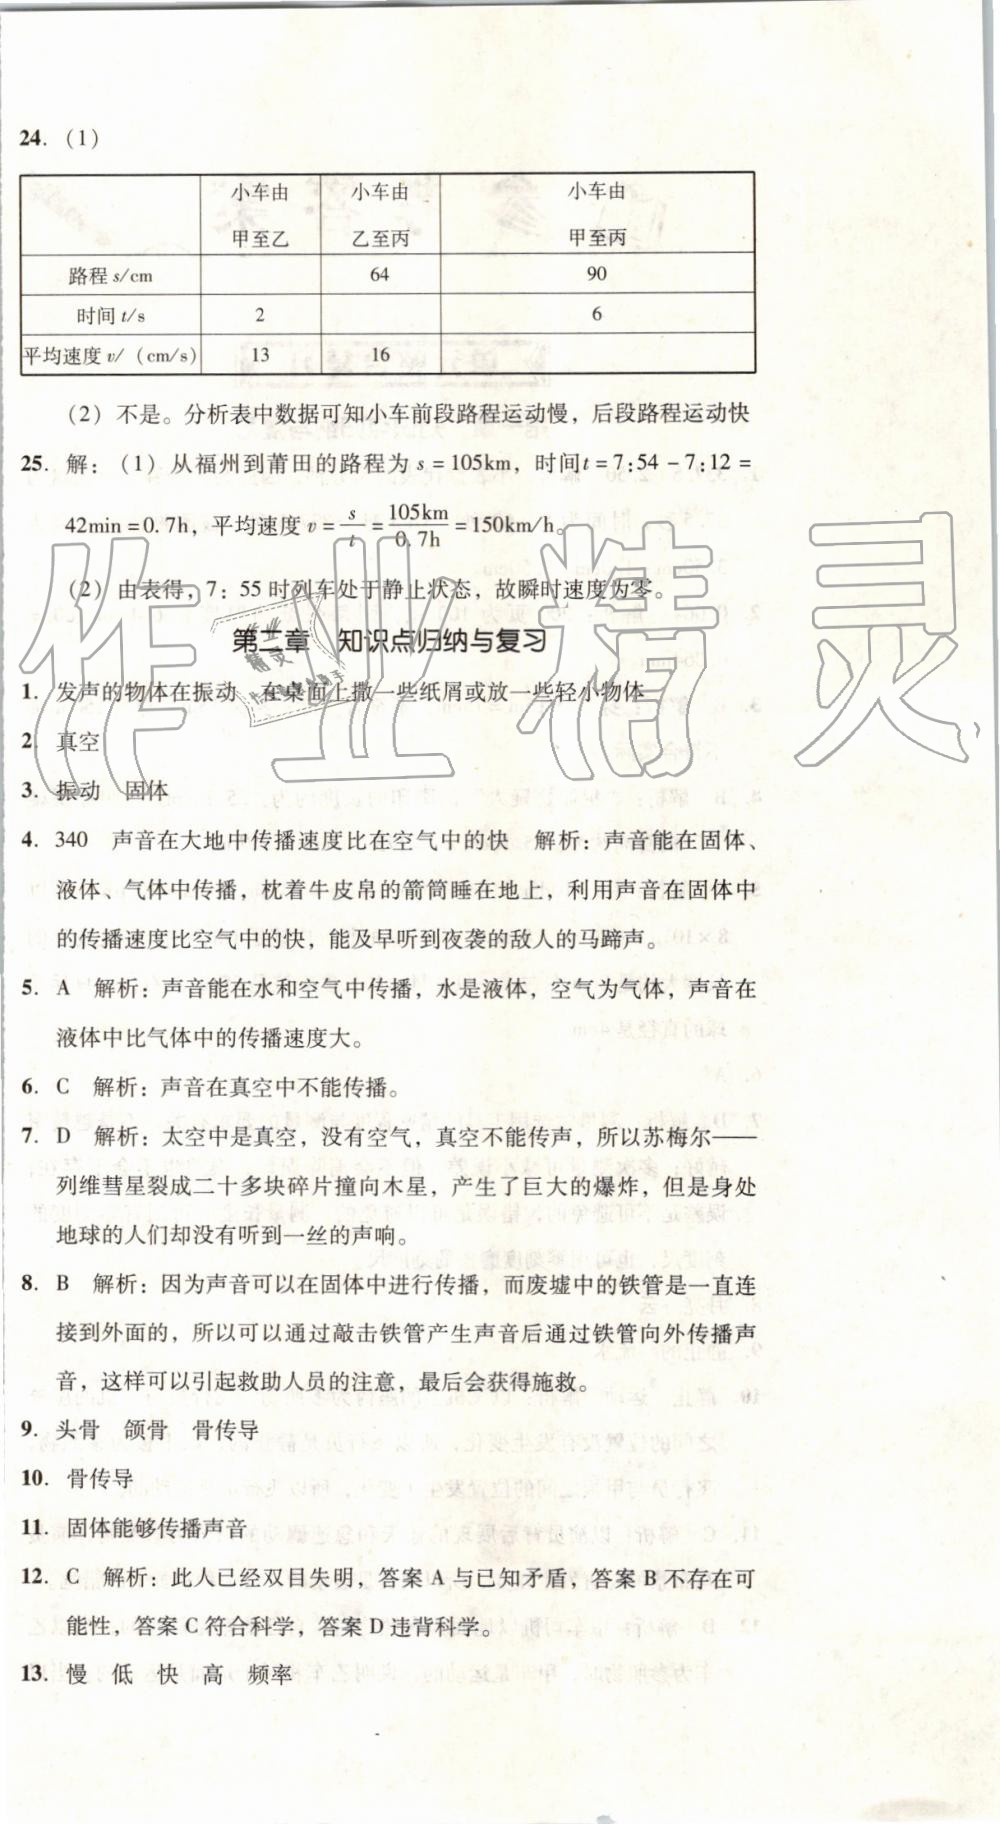 24. (1)
小车由 小车由 小车由
甲至乙 乙至丙 甲至丙
路程 s/cm 64 90
时间 t/s 2 6
平均速度 v/ (cm/s) 13 16
(2) 不是。分析表中数据可知小车前段路程运动慢，后段路程运动快
25. 解：(1) 从福州到莆田的路程为 s = 105km，时间 t = 7:54 - 7:12 =
42min = 0.7h，平均速度 v = s/t = 105km/0.7h = 150km/h。
(2) 由表得，7：55 时列车处于静止状态，故瞬时速度为零。
第二章 知识点归纳与复习
1. 发声的物体在振动 在桌面上撒一些纸屑或放一些轻小物体
2. 真空
3. 振动 固体
4. 340 声音在大地中传播速度比在空气中的快 解析：声音能在固体、
液体、气体中传播，枕着牛皮帛的箭筒睡在地上，利用声音在固体中
的传播速度比空气中的快，能及早听到夜袭的敌人的马蹄声。
5. A 解析：声音能在水和空气中传播，水是液体，空气为气体，声音在
液体中比气体中的传播速度大。
6. C 解析：声音在真空中不能传播。
7. D 解析：太空中是真空，没有空气，真空不能传声，所以苏梅尔——
列维彗星裂成二十多块碎片撞向木星，产生了巨大的爆炸，但是身处
地球的人们却没有听到一丝的声响。
8. B 解析：因为声音可以在固体中进行传播，而废墟中的铁管是一直连
接到外面的，所以可以通过敲击铁管产生声音后通过铁管向外传播声
音，这样可以引起救助人员的注意，最后会获得施救。
9. 头骨 颌骨 骨传导
10. 骨传导
11. 固体能够传播声音
12. C 解析：此人已经双目失明，答案 A 与已知矛盾，答案 B 不存在可
能性，答案 C 符合科学，答案 D 违背科学。
13. 慢 低 快 高 频率
作业精灵